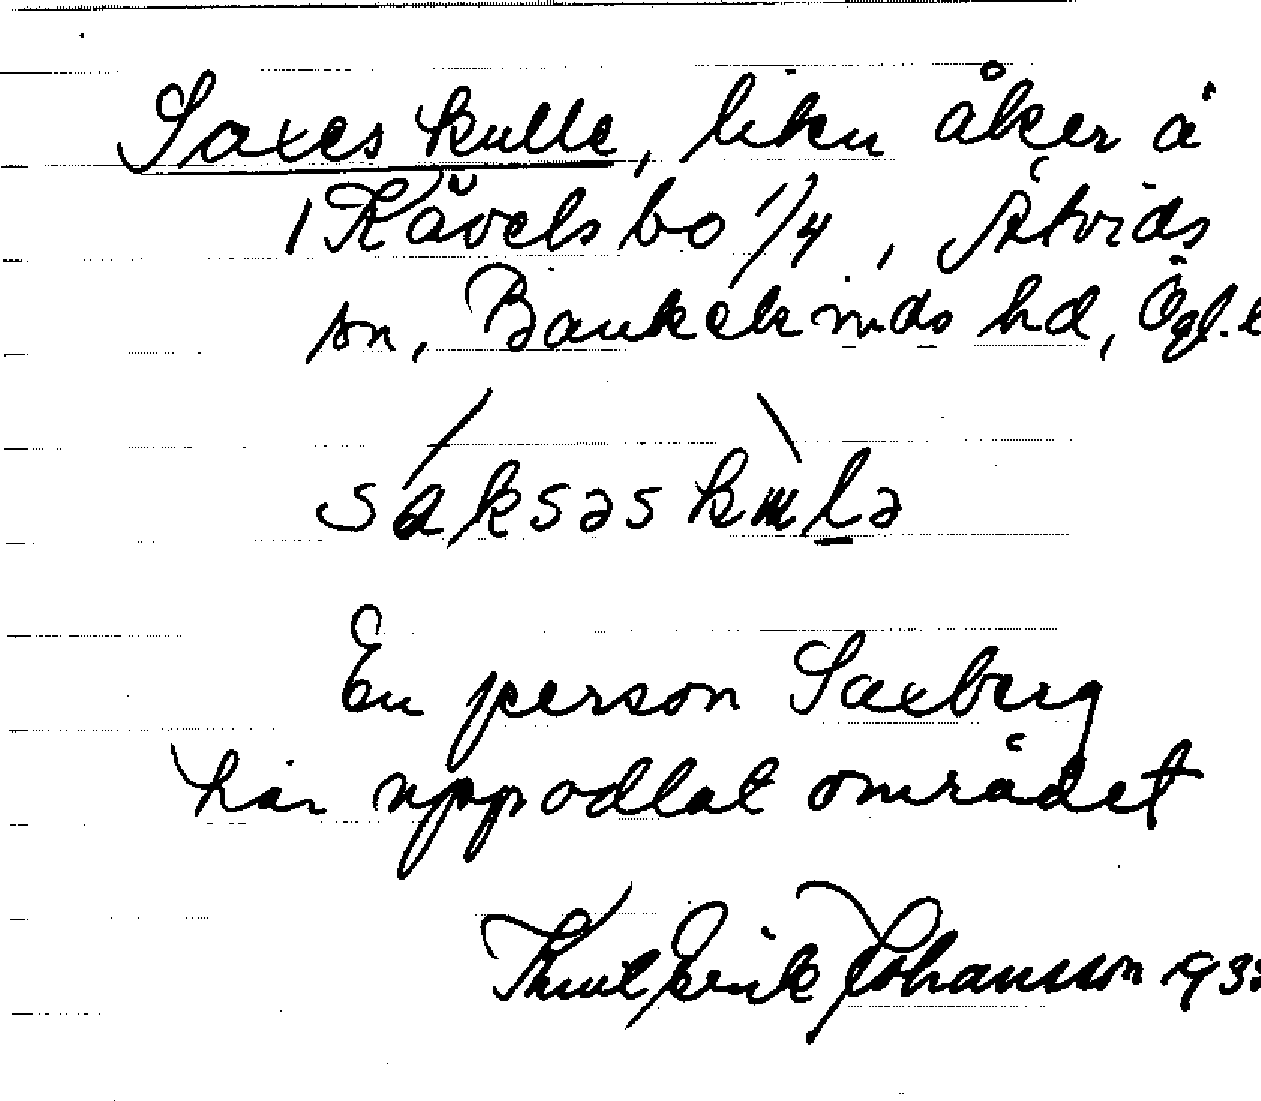 Saxes kulle, liten åker å
1 Kävelsbo 1/4, Åtvids
sn, Bankekinds hd, Ögl. l
saksəs kulə
En person Saxberg
har uppodlat området
Knut Erik Johansson 193